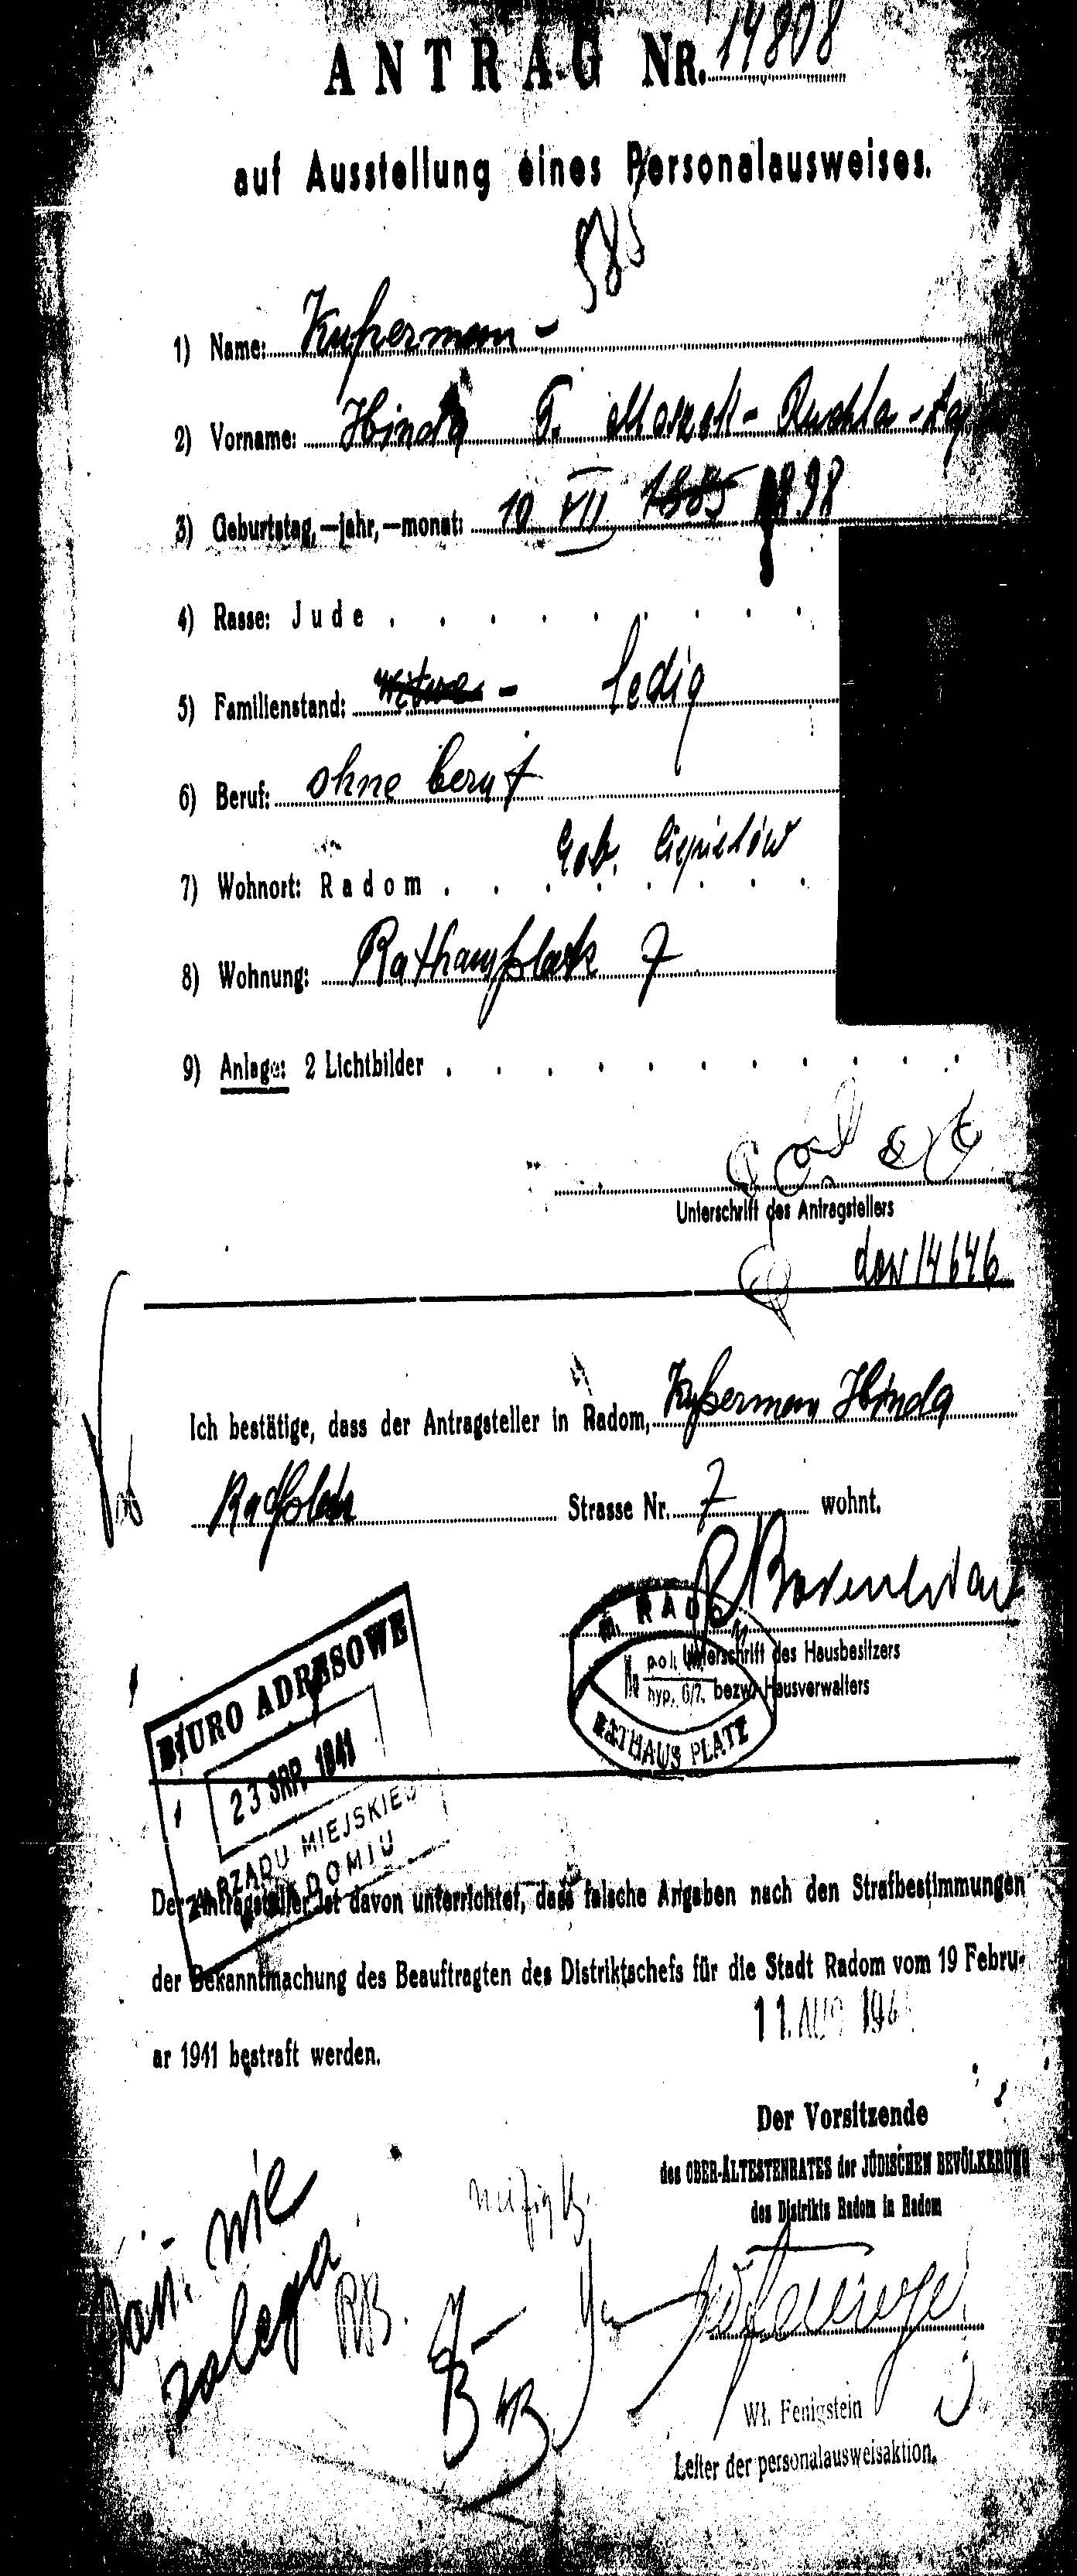 ANTRAG NR. 14808
auf Ausstellung eines Personalausweises.
585
1) Name: Kuperman -
2) Vorname: Hinda T. Moszek - Ruchla -
3) Geburtstag, —jahr, —monat: 10 VII 1885 1898
4) Rasse: Jude . . . . . . . . .
5) Familienstand: witwe - ledig
6) Beruf: ohne beruf
geb. Ciepielów
7) Wohnort: Radom . . . . . . . .
8) Wohnung: Rathausplatz 7
9) Anlage: 2 Lichtbilder . . . . . . . . . . .
Unterschrift des Antragstellers
dow 14646
Ich bestätige, dass der Antragsteller in Radom, Kuperman Hinda
Strasse Nr. 7 wohnt.
Unterschrift des Hausbesitzers
bezw. Hausverwalters
m. RADOM
№ pol.
hyp. 6/7.
RATHAUS PLATZ
BIURO ADRESOWE
23 SRP. 1941
ZARZĄDU MIEJSKIEGO
RADOMIU
Der Antragsteller ist davon unterrichtet, dass falsche Angaben nach den Strafbestimmungen
der Bekanntmachung des Beauftragten des Distriktschefs für die Stadt Radom vom 19 Febru-
ar 1941 bestraft werden.
11. AUG 194
Der Vorsitzende
des OBER-ÄLTESTENRATES der JÜDISCHEN BEVÖLKERUNG
des Distrikts Radom in Radom
nie
zalega
RB.
Wł. Fenigstein
Leiter der personalausweisaktion.